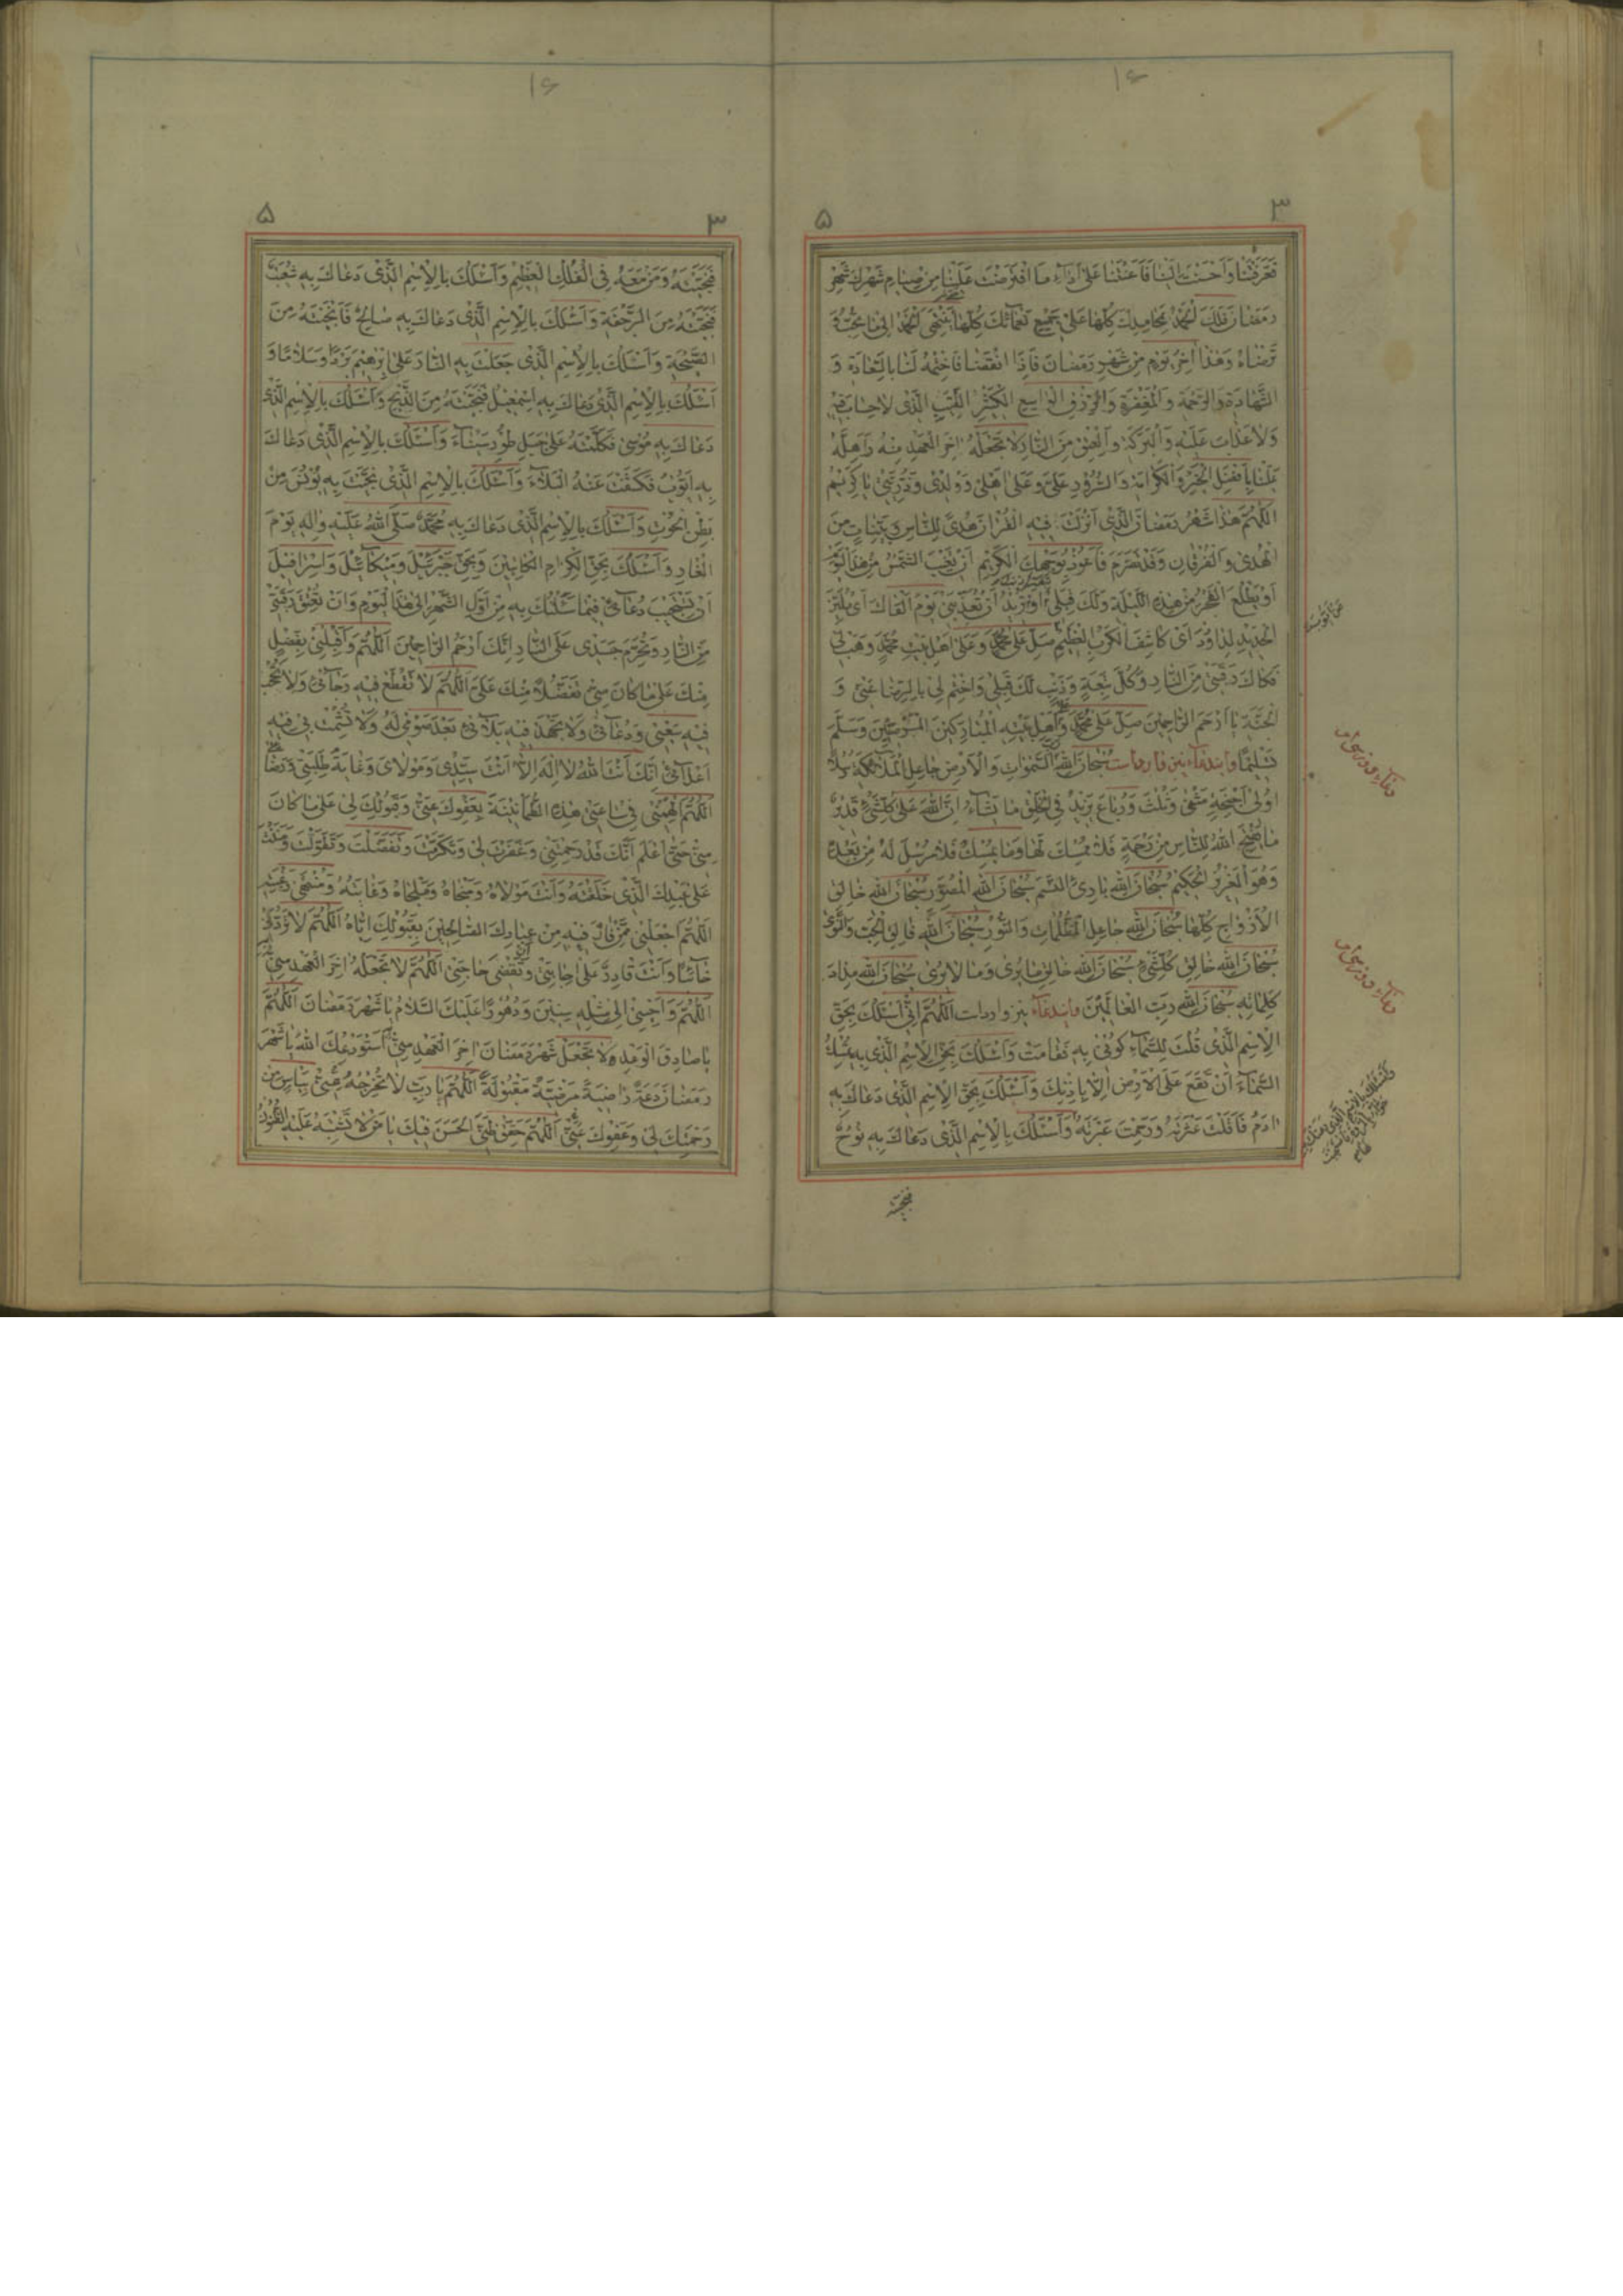 ١۶
٣ ۵
فَعَرَّفْتَنَا وَاَحْسَنْتَ اِلَيْنَا فَاَعَنْتَنَا عَلٰى اَدَآءِ مَا افْتَرَضْتَ عَلَيْنَا مِنْ صِيَامِ شَهْرِكَ شَهْرِ
رَمَضَانَ فَلَكَ الْحَمْدُ بِمَحَامِدِكَ كُلِّهَا عَلٰى جَمِيعِ نَعْمَآئِكَ كُلِّهَا حَتّٰى يَنْتَهِىَ الْحَمْدُ اِلٰى مَا تُحِبُّ وَ
تَرْضَاهُ وَهٰذَا اٰخِرُ يَوْمٍ مِنْ شَهْرِ رَمَضَانَ فَاِذَا انْقَضٰى فَاخْتِمْهُ لَنَا بِالسَّعَادَةِ وَ
الشَّهَادَةِ وَالرَّحْمَةِ وَالْمَغْفِرَةِ وَالرِّزْقِ الْوَاسِعِ الْكَثِيرِ الطَّيِّبِ الَّذِى لَا حِسَابَ فِيهِ
وَلَا عَذَابَ عَلَيْهِ وَالْبَرَكَةِ وَالْعِتْقِ مِنَ النَّارِ وَلَا تَجْعَلْهُ اٰخِرَ الْعَهْدِ مِنْهُ وَاَهِلَّهُ
عَلَيْنَا بِاَفْضَلِ الْخَيْرِ وَالْكَرَامَةِ وَالسُّرُورِ عَلَىَّ وَعَلٰى اَهْلِى وَوُلْدِى وَذُرِّيَّتِى يَا كَرِيمُ
اَللّٰهُمَّ هٰذَا شَهْرُ رَمَضَانَ الَّذِى اَنْزَلْتَ فِيهِ الْقُرْاٰنَ هُدًى لِلنَّاسِ وَبَيِّنَاتٍ مِنَ
الْهُدٰى وَالْفُرْقَانِ وَقَدْ تَصَرَّمَ فَاَعُوذُ بِوَجْهِكَ الْكَرِيمِ اَنْ تَغِيبَ الشَّمْسُ مِنْ هٰذَا الْيَوْمِ
اَوْ يَطْلُعَ الْفَجْرُ مِنْ هٰذِهِ اللَّيْلَةِ وَلَكَ قِبَلِى اَوْ تُرِيدُ اَنْ تُعَذِّبَنِى يَوْمَ اَلْقَاكَ اَىْ مُلَيِّنَ
الْحَدِيدِ لِدَاوُدَ اَىْ كَاشِفَ الْكَرْبِ الْعَظِيمِ صَلِّ عَلٰى مُحَمَّدٍ وَعَلٰى اَهْلِ بَيْتِ مُحَمَّدٍ وَهَبْ لِى
فَكَاكَ رَقَبَتِى مِنَ النَّارِ وَكُلَّ تَبِعَةٍ وَذَنْبٍ لَكَ قِبَلِى وَاخْتِمْ لِى بِالرِّضَا عَنِّى وَ
الْجَنَّةِ يَا اَرْحَمَ الرَّاحِمِينَ صَلِّ عَلٰى مُحَمَّدٍ وَاَهْلِ بَيْتِهِ الْمُبَارَكِينَ وَسَلَّمَ
تَسْلِيمًا وايندعاء نيز وارد است سُبْحَانَ اللّٰهِ السَّمٰوَاتِ وَالْاَرْضِ جَاعِلِ الْمَلَآئِكَةِ رُسُلًا
اُولِى اَجْنِحَةٍ مَثْنٰى وَثُلٰثَ وَرُبَاعَ يَزِيدُ فِى الْخَلْقِ مَا يَشَآءُ اِنَّ اللّٰهَ عَلٰى كُلِّ شَىْءٍ قَدِيرٌ
مَا يَفْتَحِ اللّٰهُ لِلنَّاسِ مِنْ رَحْمَةٍ فَلَا مُمْسِكَ لَهَا وَمَا يُمْسِكْ فَلَا مُرْسِلَ لَهُ مِنْ بَعْدِهِ
وَهُوَ الْعَزِيزُ الْحَكِيمُ سُبْحَانَ اللّٰهِ بَارِئِ النَّسَمِ سُبْحَانَ اللّٰهِ الْمُصَوِّرِ سُبْحَانَ اللّٰهِ خَالِقِ
الْاَزْوَاجِ كُلِّهَا سُبْحَانَ اللّٰهِ جَاعِلِ الظُّلُمَاتِ وَالنُّورِ سُبْحَانَ اللّٰهِ فَالِقِ الْحَبِّ وَالنَّوٰى
سُبْحَانَ اللّٰهِ خَالِقِ كُلِّ شَىْءٍ سُبْحَانَ اللّٰهِ خَالِقِ مَا يُرٰى وَمَا لَا يُرٰى سُبْحَانَ اللّٰهِ مِدَادَ
كَلِمَاتِهِ سُبْحَانَ اللّٰهِ رَبِّ الْعَالَمِينَ وايندعاء نيز وارد است اَللّٰهُمَّ اِنِّى اَسْئَلُكَ بِحَقِّ
الْاِسْمِ الَّذِى قُلْتَ لِلسَّمَآءِ كُونِى بِهِ فَقَامَتْ وَاَسْئَلُكَ بِحَقِّ الْاِسْمِ الَّذِى بِهِ تُمْسِكُ
السَّمَآءَ اَنْ تَقَعَ عَلَى الْاَرْضِ اِلَّا بِاِذْنِكَ وَاَسْئَلُكَ بِحَقِّ الْاِسْمِ الَّذِى دَعَاكَ بِهِ
اٰدَمُ فَاَقَلْتَ عَثْرَتَهُ وَرَحِمْتَ عَبْرَتَهُ وَاَسْئَلُكَ بِالْاِسْمِ الَّذِى دَعَاكَ بِهِ نُوحٌ
فنجيته
١۶
٣ ۵
فَنَجَّيْتَهُ وَمَنْ مَعَهُ فِى الْفُلْكِ الْعَظِيمِ وَاَسْئَلُكَ بِالْاِسْمِ الَّذِى دَعَاكَ بِهِ شُعَيْبٌ
فَنَجَّيْتَهُ مِنَ الرَّجْفَةِ وَاَسْئَلُكَ بِالْاِسْمِ الَّذِى دَعَاكَ بِهِ صَالِحٌ فَاَنْجَيْتَهُ مِنَ
الصَّيْحَةِ وَاَسْئَلُكَ بِالْاِسْمِ الَّذِى جَعَلْتَ بِهِ النَّارَ عَلٰى اِبْرٰهِيمَ بَرْدًا وَسَلَامًا وَ
اَسْئَلُكَ بِالْاِسْمِ الَّذِى دَعَاكَ بِهِ اِسْمٰعِيلُ فَنَجَّيْتَهُ مِنَ الذَّبْحِ وَاَسْئَلُكَ بِالْاِسْمِ الَّذِى
دَعَاكَ بِهِ مُوسٰى فَكَلَّمْتَهُ عَلٰى جَبَلِ طُورِ سَيْنَآءَ وَاَسْئَلُكَ بِالْاِسْمِ الَّذِى دَعَاكَ
بِهِ اَيُّوبُ فَكَشَفْتَ عَنْهُ الْبَلَآءَ وَاَسْئَلُكَ بِالْاِسْمِ الَّذِى نَجَّيْتَ بِهِ يُونُسَ مِنْ
بَطْنِ الْحُوتِ وَاَسْئَلُكَ بِالْاِسْمِ الَّذِى دَعَاكَ بِهِ مُحَمَّدٌ صَلَّى اللّٰهُ عَلَيْهِ وَاٰلِهِ يَوْمَ
الْغَارِ وَاَسْئَلُكَ بِحَقِّ الْكِرَامِ الْكَاتِبِينَ وَبِحَقِّ جَبْرَئِيلَ وَمِيكَآئِيلَ وَاِسْرَافِيلَ
اَنْ تَسْتَجِيبَ دُعَآئِى فِيمَا سَئَلْتُكَ بِهِ مِنْ اَوَّلِ الشَّهْرِ اِلٰى هٰذَا الْيَوْمِ وَاَنْ تُعْتِقَ رَقَبَتِى
مِنَ النَّارِ وَتُحَرِّمَ جَسَدِى عَلَى النَّارِ اِنَّكَ اَرْحَمُ الرَّاحِمِينَ اَللّٰهُمَّ وَاَقْبِلْنِى بِفَضْلٍ
مِنْكَ عَلٰى مَا كَانَ مِنِّى تَفَضُّلًا مِنْكَ عَلَىَّ اَللّٰهُمَّ لَا تَقْطَعْ فِيهِ رَجَآئِى وَلَا تُخَيِّبْ
فِيهِ سَعْيِى وَدُعَآئِى وَلَا تَجْهَدْ فِيهِ بَلَآئِى بَعْدَ وَلَا تُشْمِتْ بِى فِيهِ
اَعْدَآئِى اِنَّكَ اَنْتَ اللّٰهُ لَا اِلٰهَ اِلَّا اَنْتَ سَيِّدِى وَمَوْلَاىَ وَغَايَةُ طَلِبَتِى وَرِضَا
اَللّٰهُمَّ اَلْهِمْنِى فِى سَاعَتِى هٰذِهِ الطُّمَأْنِينَةَ بِعَفْوِكَ عَنِّى وَقَبُولِكَ لِى عَلٰى مَا كَانَ
مِنِّى حَتّٰى اَعْلَمَ اَنَّكَ قَدْ رَحِمْتَنِى وَغَفَرْتَ لِى وَتَكَرَّمْتَ وَتَفَضَّلْتَ وَتَطَوَّلْتَ وَمَنَنْتَ
عَلٰى عَبْدِكَ الَّذِى خَلَقْتَهُ وَاَنْتَ مَوْلَاهُ وَمَنْجَاهُ وَمَلْجَاهُ وَغَايَتُهُ وَمُنْتَهٰى رَغْبَتِهِ
اَللّٰهُمَّ اجْعَلْنِى مِمَّنْ فَازَ فِيهِ مِنْ عِبَادِكَ الصَّالِحِينَ بِقَبُولِكَ اِيَّاهُ اَللّٰهُمَّ لَا تَرُدَّنِى
خَآئِبًا وَاَنْتَ قَادِرٌ عَلٰى اِجَابَتِى وَتَقْضِى حَاجَتِى اَللّٰهُمَّ لَا تَجْعَلْهُ اٰخِرَ الْعَهْدِ مِنِّى
اَللّٰهُمَّ وَاَحْيِنِى اِلٰى مِثْلِهِ سِنِينَ وَدُهُورًا عَلَيْكَ السَّلَامُ يَا شَهْرَ رَمَضَانَ اَللّٰهُمَّ
يَا صَادِقَ الْوَعْدِ وَلَا تَجْعَلْ شَهْرَ رَمَضَانَ اٰخِرَ الْعَهْدِ مِنِّى اَسْتَوْدِعُكَ اللّٰهَ يَا شَهْرَ
رَمَضَانَ دَعَةً رَاضِيَةً مَرْضِيَّةً مَقْبُولَةً اَللّٰهُمَّ يَا رَبِّ لَا تُخْرِجْهُ عَنِّى بِيَاسٍ مِنْ
رَحْمَتِكَ لِى وَعَفْوِكَ عَنِّى اَللّٰهُمَّ حَقِّقْ ظَنِّىَ الْحَسَنَ فِيكَ يَا مَنْ لَا تَشْتَبِهُ عَلَيْهِ